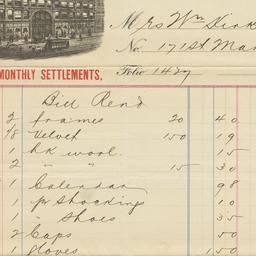 Mrs Wm Kirk
No. 171 St Mar
MONTHLY SETTLEMENTS. Folio 1427
Bill Rend
2 frames 20 40
1/8 Velvet 150 19
1 hk wool 15
2 " " 15 30
1 Calendar 98
1 pr Stockings 10
1 " Shoes 35
2 Caps 50
1 gloves 150